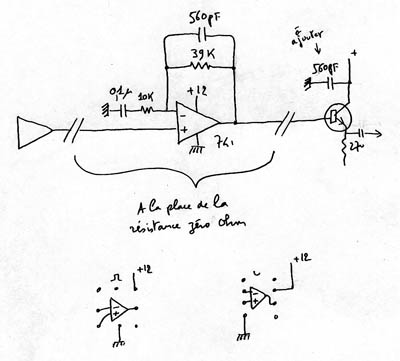 560pF
39K
à
ajouter
+
560pF
0,1µ
10K
+12
-
+
741
A la place de la
résistance zéro Ohm
+12
-
+
+12
-
+